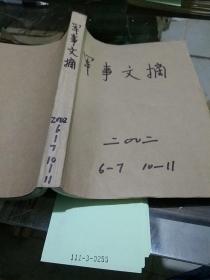 军事文摘
2002
6
7
10
11
军事文摘
二〇〇二
6-7 10-11
111-3-0255